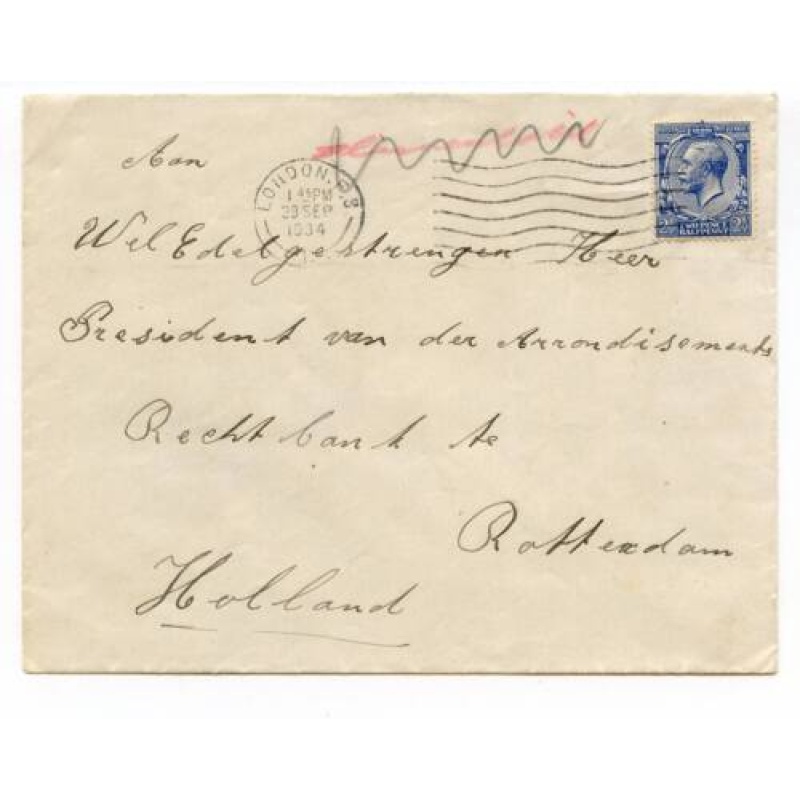 Aan
LONDON. P.3
1 45 PM
28 SEP
1934
TWOPENCE
HALFPENNY
WelEdelgestrengen Heer
President van der Arrondisements
Rechtbank te
Rotterdam
Holland